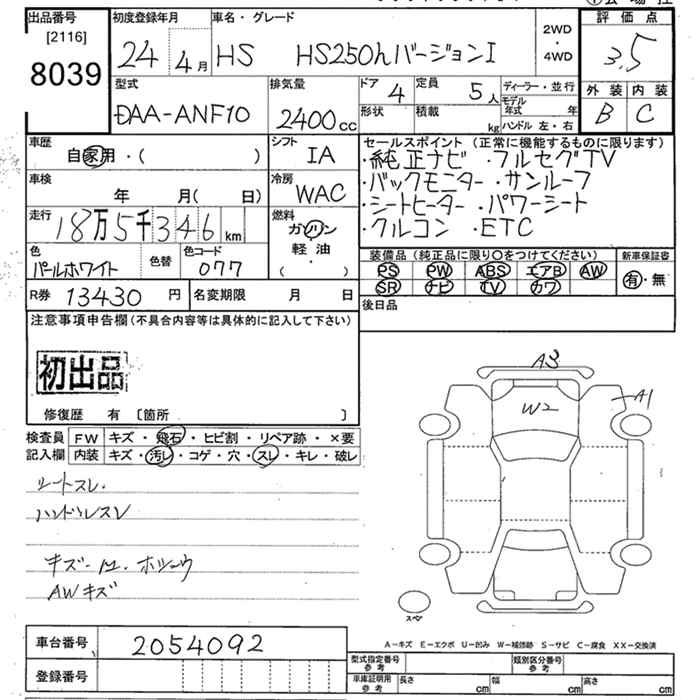 出品番号 初度登録年月 車名・グレード 2WD・4WD 評価点
[2116]
8039 24年 4月 HS HS250hバージョンI 3.5
型式 排気量 ドア 4 定員 5人 ディーラー・並行 外装 内装
DAA-ANF10 2400cc 形状 積載 kg モデル年式 年 B C
ハンドル 左・右
車歴 シフト セールスポイント (正常に機能するものに限ります)
自家用・( ) IA ・純正ナビ ・フルセグTV
車検 冷房 ・バックモニター ・サンルーフ
年 月(日) WAC ・シートヒーター ・パワーシート
走行 燃料 ・クルコン ・ETC
18万5千346km ガソリン
軽油
( )
色 色替 色コード 装備品 (純正品に限り〇をつけてください) 新車保証書
パールホワイト 077 PS PW ABS エアB AW 有・無
SR ナビ TV カワ
R券 13430円 名変期限 月 日 後日品
注意事項申告欄(不具合内容等は具体的に記入して下さい)
初出品
修復歴 有 [箇所 ]
A3
W2
A1
検査員 FW キズ・飛石・ヒビ割・リペア跡・×要
記入欄 内装 キズ・汚レ・コゲ・穴・スレ・キレ・破レ
シートスレ.
ハンドルスレ
AWキズ
スペア
A－キズ E－エクボ U－凹み W－補修跡 S－サビ C－腐食 XX－交換済
車台番号 2054092
型式指定番号 参考 類別区分番号 参考
登録番号 車庫証明用 参考 長さ cm 幅 cm 高さ cm